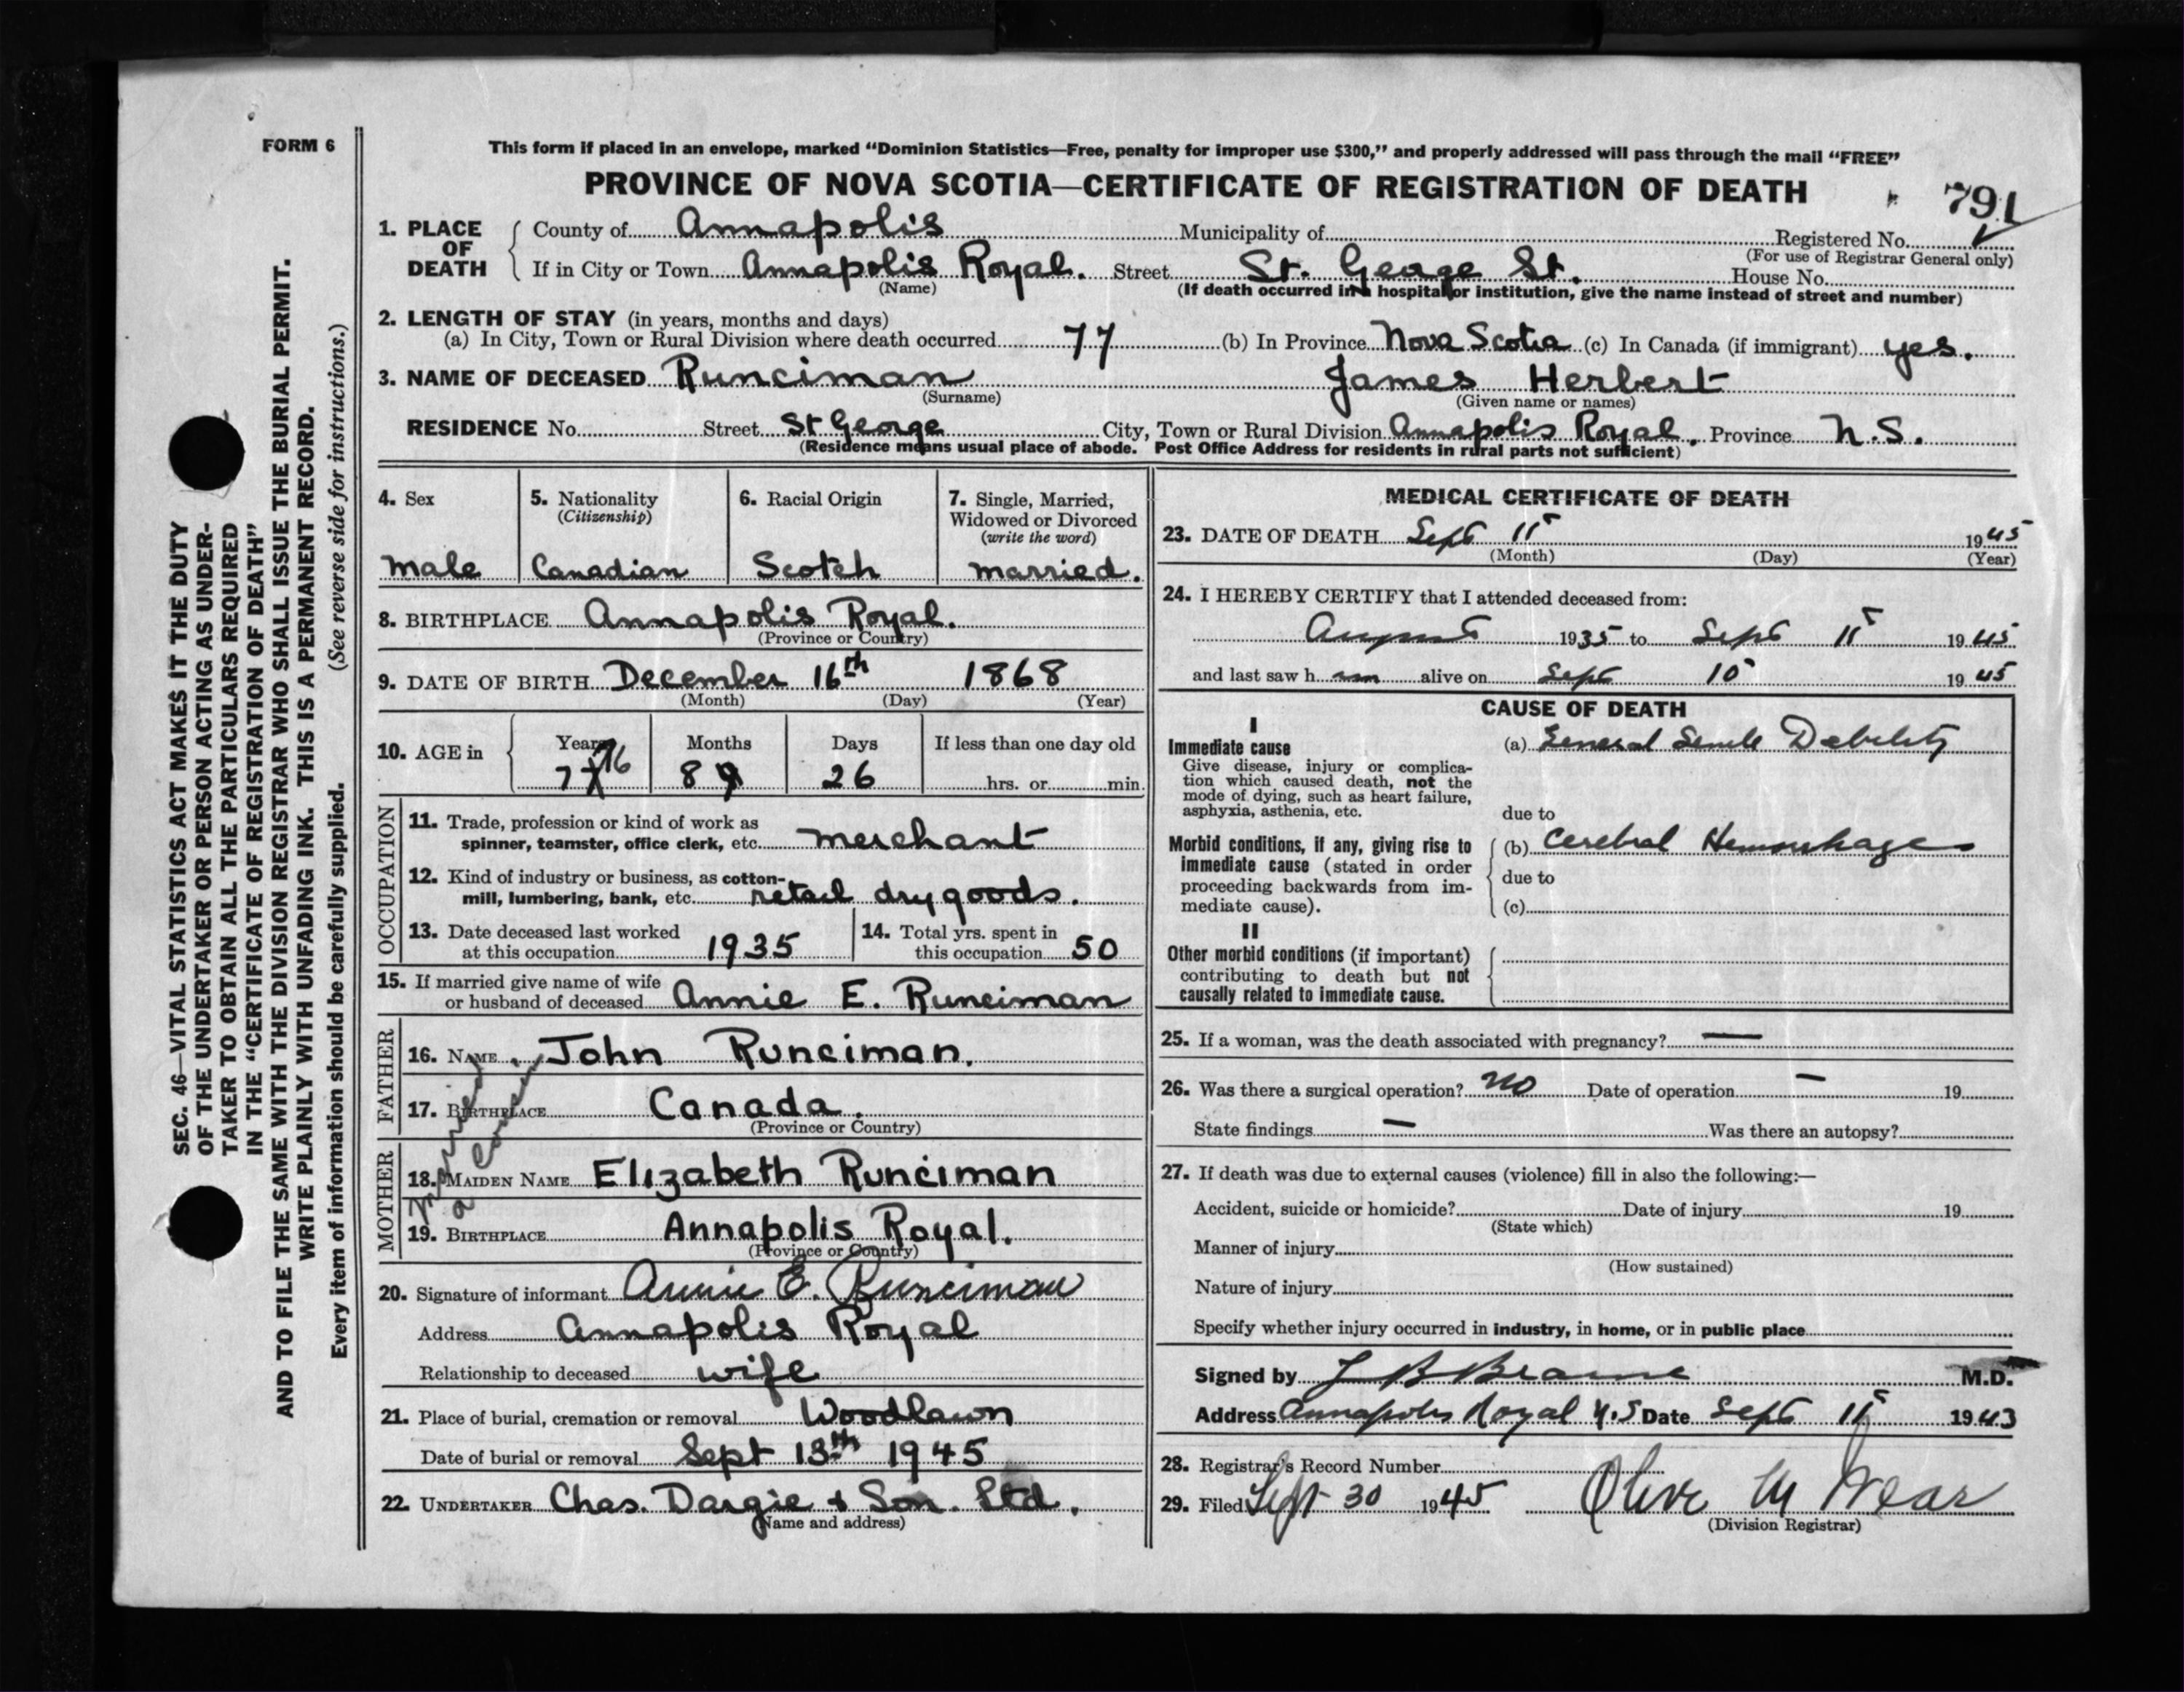 FORM 6
This form if placed in an envelope, marked “Dominion Statistics—Free, penalty for improper use $300,” and properly addressed will pass through the mail “FREE”
PROVINCE OF NOVA SCOTIA—CERTIFICATE OF REGISTRATION OF DEATH
791
1. PLACE OF DEATH County of Annapolis Municipality of Registered No.
(For use of Registrar General only)
If in City or Town Annapolis Royal. Street St. George St. House No.
(Name) (If death occurred in a hospital or institution, give the name instead of street and number)
2. LENGTH OF STAY (in years, months and days)
(a) In City, Town or Rural Division where death occurred 77 (b) In Province Nova Scotia (c) In Canada (if immigrant) yes.
3. NAME OF DECEASED Runciman James Herbert
(Surname) (Given name or names)
RESIDENCE No. Street St George City, Town or Rural Division Annapolis Royal. Province N.S.
(Residence means usual place of abode. Post Office Address for residents in rural parts not sufficient)
4. Sex
male
5. Nationality
(Citizenship)
Canadian
6. Racial Origin
Scotch
7. Single, Married,
Widowed or Divorced
(write the word)
married.
8. BIRTHPLACE Annapolis Royal.
(Province or Country)
9. DATE OF BIRTH December 16th 1868
(Month) (Day) (Year)
10. AGE in Years Months Days If less than one day old
76 8 26 hrs. or min.
OCCUPATION
11. Trade, profession or kind of work as
spinner, teamster, office clerk, etc. merchant
12. Kind of industry or business, as cotton-
mill, lumbering, bank, etc. retail dry goods.
13. Date deceased last worked
at this occupation 1935
14. Total yrs. spent in
this occupation 50
15. If married give name of wife
or husband of deceased Annie E. Runciman
FATHER
16. NAME John Runciman.
17. BIRTHPLACE Canada.
(Province or Country)
married
a cousin
MOTHER
18. MAIDEN NAME Elizabeth Runciman
19. BIRTHPLACE Annapolis Royal.
(Province or Country)
20. Signature of informant Annie E. Runciman
Address Annapolis Royal
Relationship to deceased wife
21. Place of burial, cremation or removal Woodlawn
Date of burial or removal Sept 13th 1945
22. UNDERTAKER Chas. Dargie & Son. Ltd.
(Name and address)
MEDICAL CERTIFICATE OF DEATH
23. DATE OF DEATH Sept 11 1945
(Month) (Day) (Year)
24. I HEREBY CERTIFY that I attended deceased from:
August 1935 to Sept 11 1945
and last saw h im alive on Sept 10 1945
CAUSE OF DEATH
I
Immediate cause
Give disease, injury or complica-
tion which caused death, not the
mode of dying, such as heart failure,
asphyxia, asthenia, etc.
(a) General Senile Debility
due to
Morbid conditions, if any, giving rise to
immediate cause (stated in order
proceeding backwards from im-
mediate cause).
(b) Cerebral Hemorrhage
due to
(c)
II
Other morbid conditions (if important)
contributing to death but not
causally related to immediate cause.
25. If a woman, was the death associated with pregnancy? —
26. Was there a surgical operation? no Date of operation — 19
State findings — Was there an autopsy?
27. If death was due to external causes (violence) fill in also the following:—
Accident, suicide or homicide? Date of injury 19
(State which)
Manner of injury
(How sustained)
Nature of injury
Specify whether injury occurred in industry, in home, or in public place
Signed by M.D.
Address Annapolis Royal N.S Date Sept 11 1943
28. Registrar's Record Number
29. Filed Sept 30 1945 Olive M Wear
(Division Registrar)
SEC. 46—VITAL STATISTICS ACT MAKES IT THE DUTY
OF THE UNDERTAKER OR PERSON ACTING AS UNDER-
TAKER TO OBTAIN ALL THE PARTICULARS REQUIRED
IN THE “CERTIFICATE OF REGISTRATION OF DEATH”
AND TO FILE THE SAME WITH THE DIVISION REGISTRAR WHO SHALL ISSUE THE BURIAL PERMIT.
WRITE PLAINLY WITH UNFADING INK. THIS IS A PERMANENT RECORD.
Every item of information should be carefully supplied. (See reverse side for instructions.)